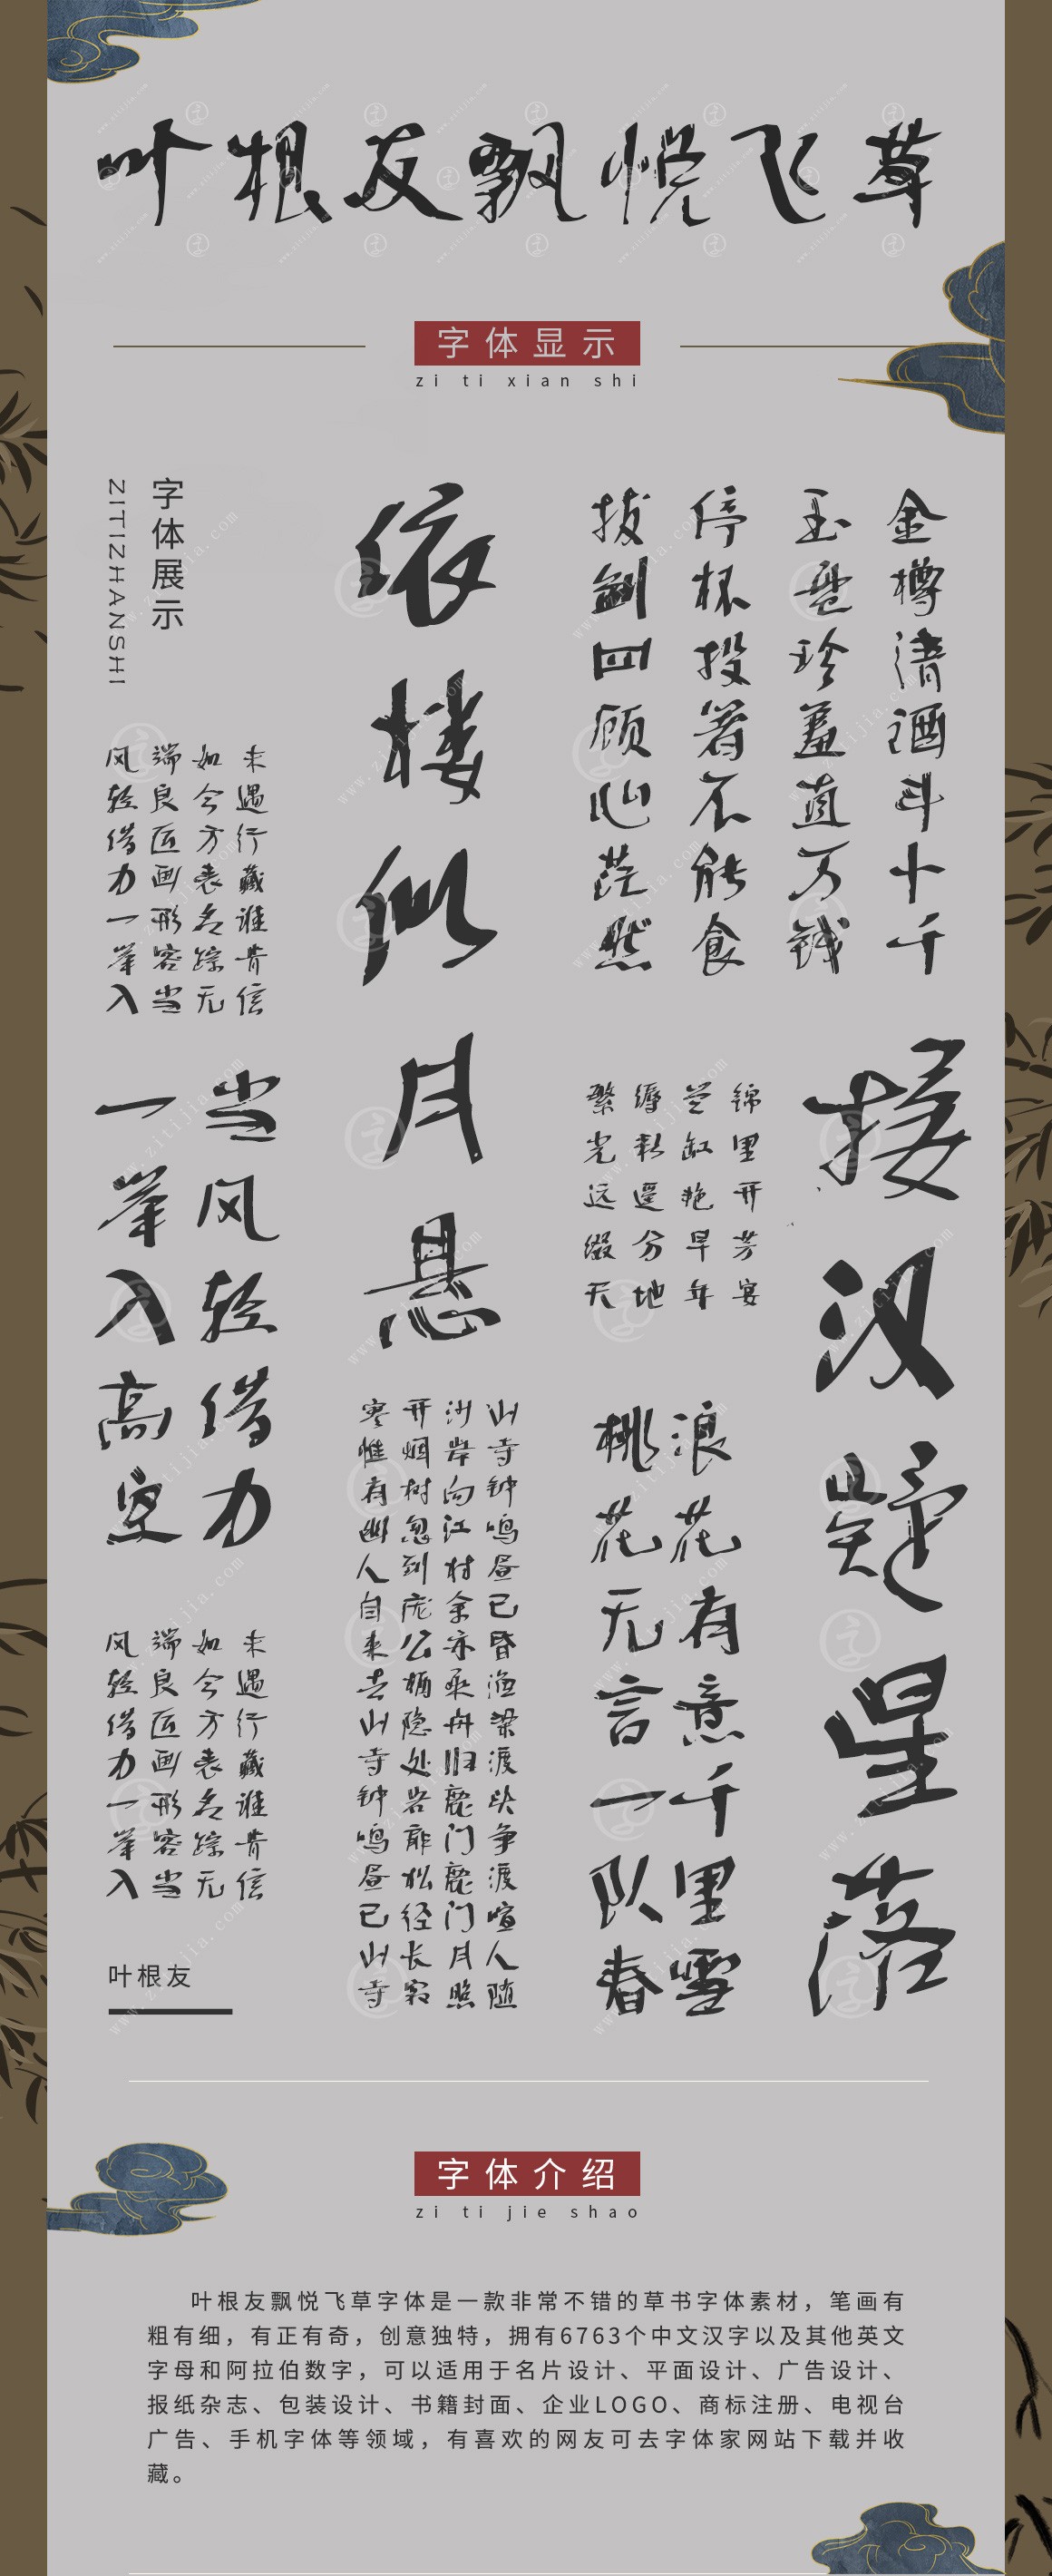 叶根友飘悦飞草
字体显示
zi ti xian shi
金樽清酒斗十千
玉盘珍羞直万钱
停杯投箸不能食
拔剑四顾心茫然
依楼似月悬
字体展示
ZITIZHANSHI
未遇行藏谁肯信
如今方表名踪无
端良匠画形容当
风轻借力一举入
接汉疑星落
锦里开芳宴
兰缸艳早年
缛彩遥分地
繁光远缀天
当风轻借力
一举入高空
浪花有意千里雪
桃花无言一队春
山寺钟鸣昼已昏渔梁渡头争渡喧人随
沙岸向江村余亦乘舟归鹿门鹿门月照
开烟树忽到庞公栖隐处岩扉松径长寂
寥惟有幽人自来去山寺钟鸣昼已山寺
未遇行藏谁肯信
如今方表名踪无
端良匠画形容当
风轻借力一举入
叶根友
字体介绍
zi ti jie shao
叶根友飘悦飞草字体是一款非常不错的草书字体素材，笔画有
粗有细，有正有奇，创意独特，拥有6763个中文汉字以及其他英文
字母和阿拉伯数字，可以适用于名片设计、平面设计、广告设计、
报纸杂志、包装设计、书籍封面、企业LOGO、商标注册、电视台
广告、手机字体等领域，有喜欢的网友可去字体家网站下载并收
藏。
www.zitijia.com